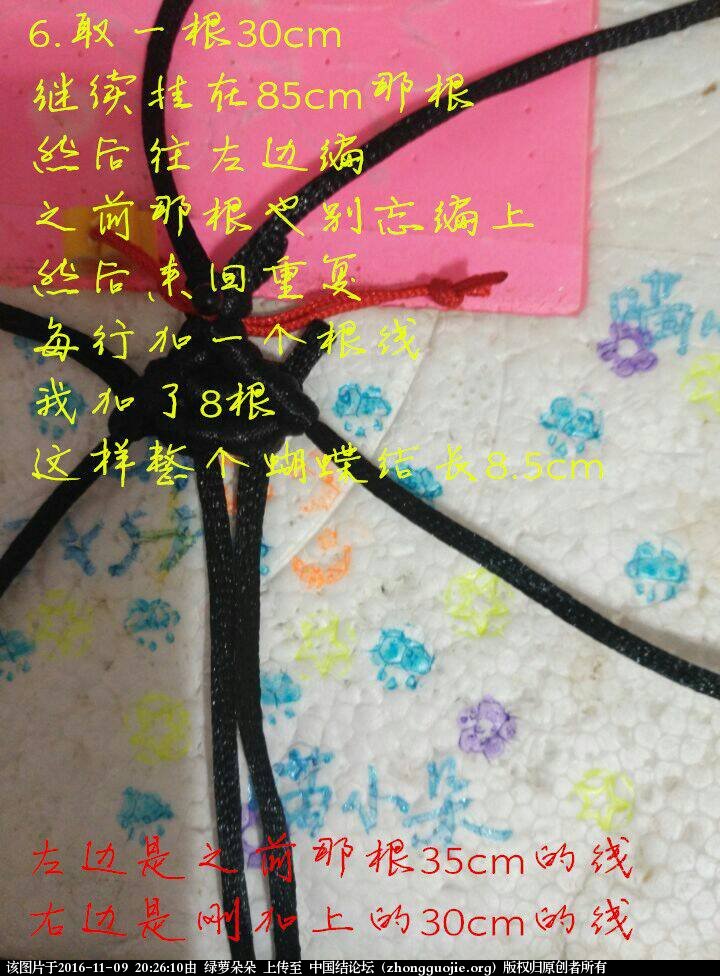 6.取一根30cm
继续挂在85cm那根
然后往左边编
之前那根也别忘编上
然后来回重复
每行加一个根线
我加了8根
这样整个蝴蝶结长8.5cm
苗小朵
左边是之前那根35cm的线
右边是刚加上的30cm的线
该图片于2016-11-09 20:26:10由 绿萝朵朵 上传至 中国结论坛 (zhongguojie.org) 版权归原创者所有